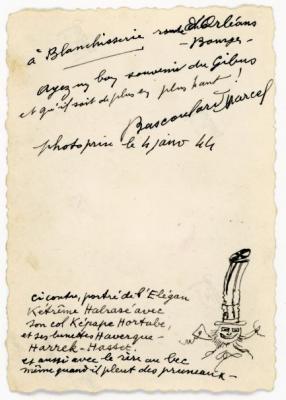 à Blanchisserie route d'Orléans
- Bourges -
Ayez un bon souvenir du Gibus
et qu'il soit de plus en plus haut !
Bascoulard Marcel
photo prise le 4 janv 44
ci contre, portré de l'Elégan
Kétrême Halrasé avec
son col Képapa Hortube,
et ses lunettes Havergue-
Harrek-Hassit.
et aussi avec le rère au bec
même quand il pleut des pruneaux -